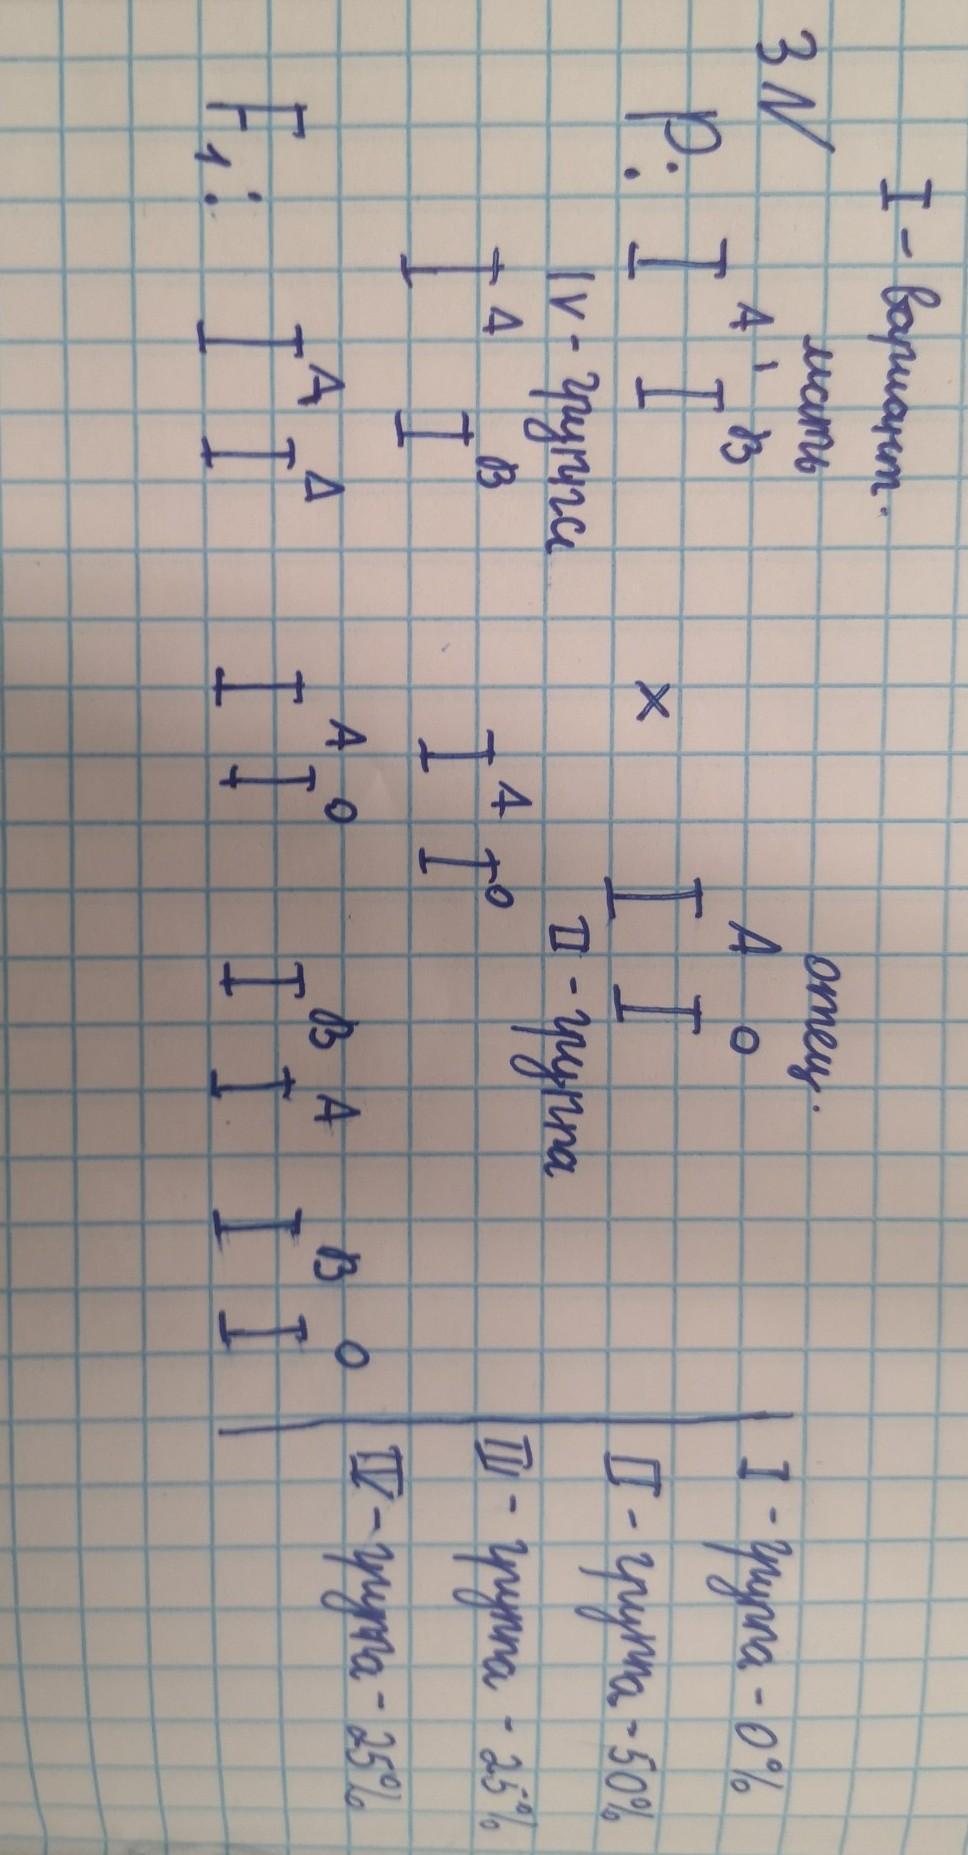 I - вариант.
3N мать отец.
P: I A I B × I A I O
IV - группа II - группа
I A I B I A I O
F1: I A I A I A I O I B I A I B I O
I - группа - 0%
II - группа - 50%
III - группа - 25%
IV - группа - 25%